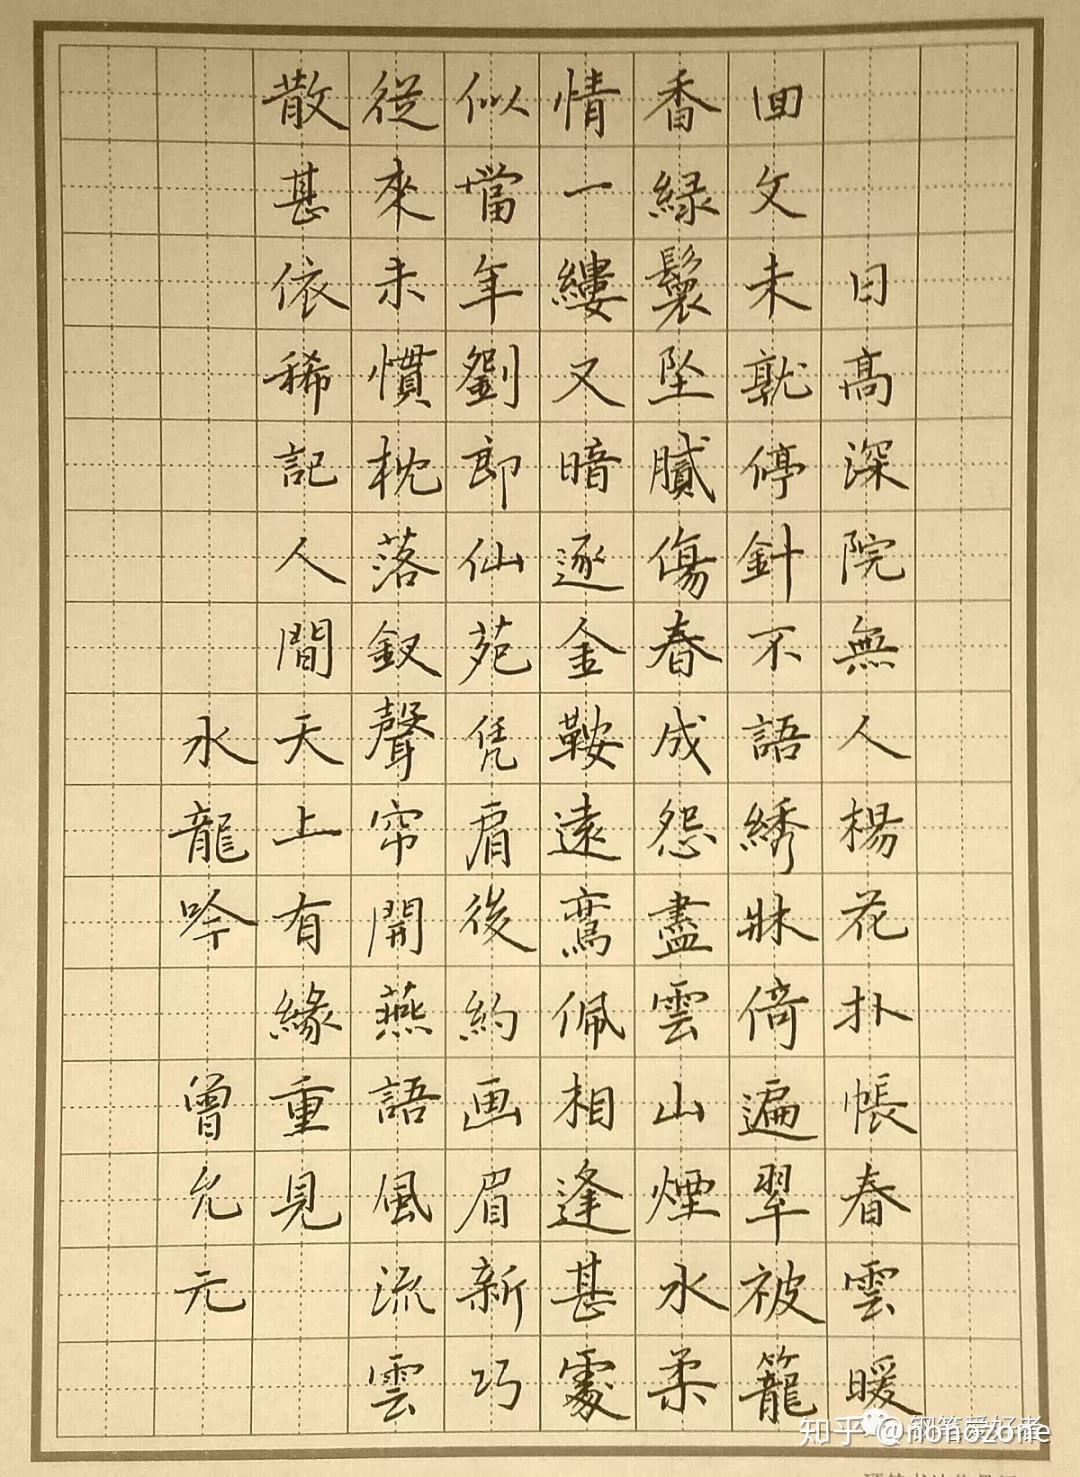 日高深院無人楊花扑帳春雲暖
回文未就停針不語綉牀倚遍翠被籠
香緑鬟坠膩傷春成怨盡雲山煙水柔
情一縷又暗逐金鞍遠鵉佩相逢甚處
似當年劉郎仙苑凭肩後約画眉新巧
從來未慣枕落釵聲帘開燕語風流雲
散甚依稀記人間天上有緣重見
水龍吟 曾允元
知乎 @nonozone
钢笔爱好者